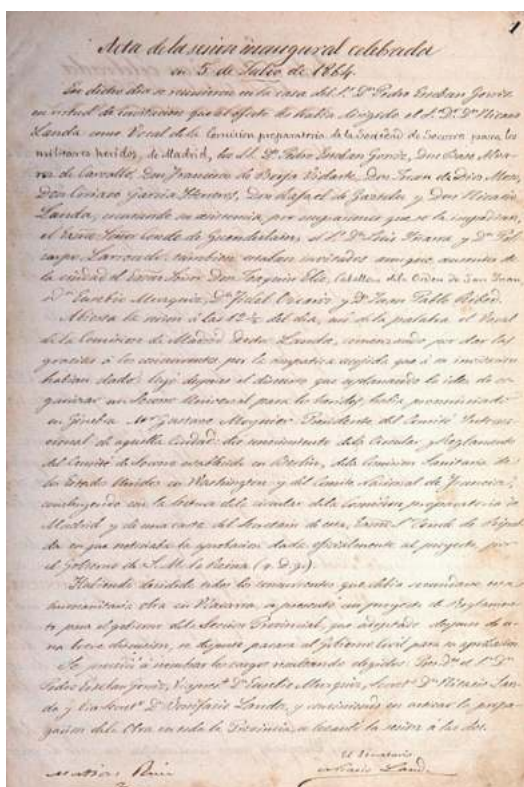 1
Acta de la sesion inaugural celebrada
en 5 de Julio de 1864.
En dicho dia se reunieron en la casa del Sr. Dn. Pedro Esteban Gorriz
en virtud de invitacion que al efecto les habia dirigido el Sr. Dr. Dn. Nicasio
Landa como Vocal de la Comision preparatoria de la Sociedad de Socorro para los
militares heridos, de Madrid, los Sres. Dn. Pedro Esteban Gorriz,
de Carvallo, Don Francisco de Borja Vidarte, Don Juan de Dios
Don Garcia Herreros, Don Rafael de Gaztelu y Don Nicasio
Landa, su asistencia, por ocupaciones que se lo impedian,
el Exmo Señor Conde de Guenduláin, el Sr. Dn. Luis Iñarra y Dn. Pol-
carpo Larrondo: tambien estaban invitados aunque ausentes de
la ciudad el Exmo Señor Don Joaquin Elio, Caballero de la Orden de San Juan
Dn. Eusebio Murquiz, Dn. Fidel y Dn. Juan Pablo Ribed.
Abierta la sesion á las 12 ½ del dia, usó de la palabra el Vocal
de la Comision de Madrid Doctor Landa, comenzando por dar las
gracias á los concurrentes por la simpatica acogida que á su invitacion
habian dado: leyó despues el discurso que esplanando la idea de or-
ganizar un Socorro Universal para los heridos, habia pronunciado
en Ginebra Mr. Gustavo Moynier Presidente del Comité Interna-
cional de aquella Ciudad: dio conocimiento de la Circular y Reglamento
del Comité de Socorro establecido en Berlin, de la Comision Sanitaria de
los Estados Unidos en Washington y del Comité Nacional de Francia;
concluyendo con la lectura de la circular de la Comision preparatoria de
Madrid y de una carta del Secretario de esta, Exmo Sr. Conde de Ripal-
da en que noticiaba la aprobacion dada oficialmente al proyecto por
el Gobierno de S. M. la Reina (q. D. g.).
Habiendo decidido todos los concurrentes que debia secundarse esta
humanitaria obra en Navarra, se presentó un proyecto de Reglamen-
to para el gobierno de la Seccion Provincial, que adoptado despues de u-
na breve discusion, se dispuso pasara al Gobierno Civil para su aprobacion.
Se procedió á nombrar los cargos resultando elegidos: Presdte. el Sr. Dn.
Pedro Esteban Gorriz, Vicepresdte. Dn. Eusebio Murquiz, Secreto. Dn. Nicasio Lan-
da y Dn. Bonifacio Landa, y conviniendo en activar la propa-
gacion de la Obra en toda la Provincia, se levantó la sesion á las dos.
El Secretario
Nicasio Landa